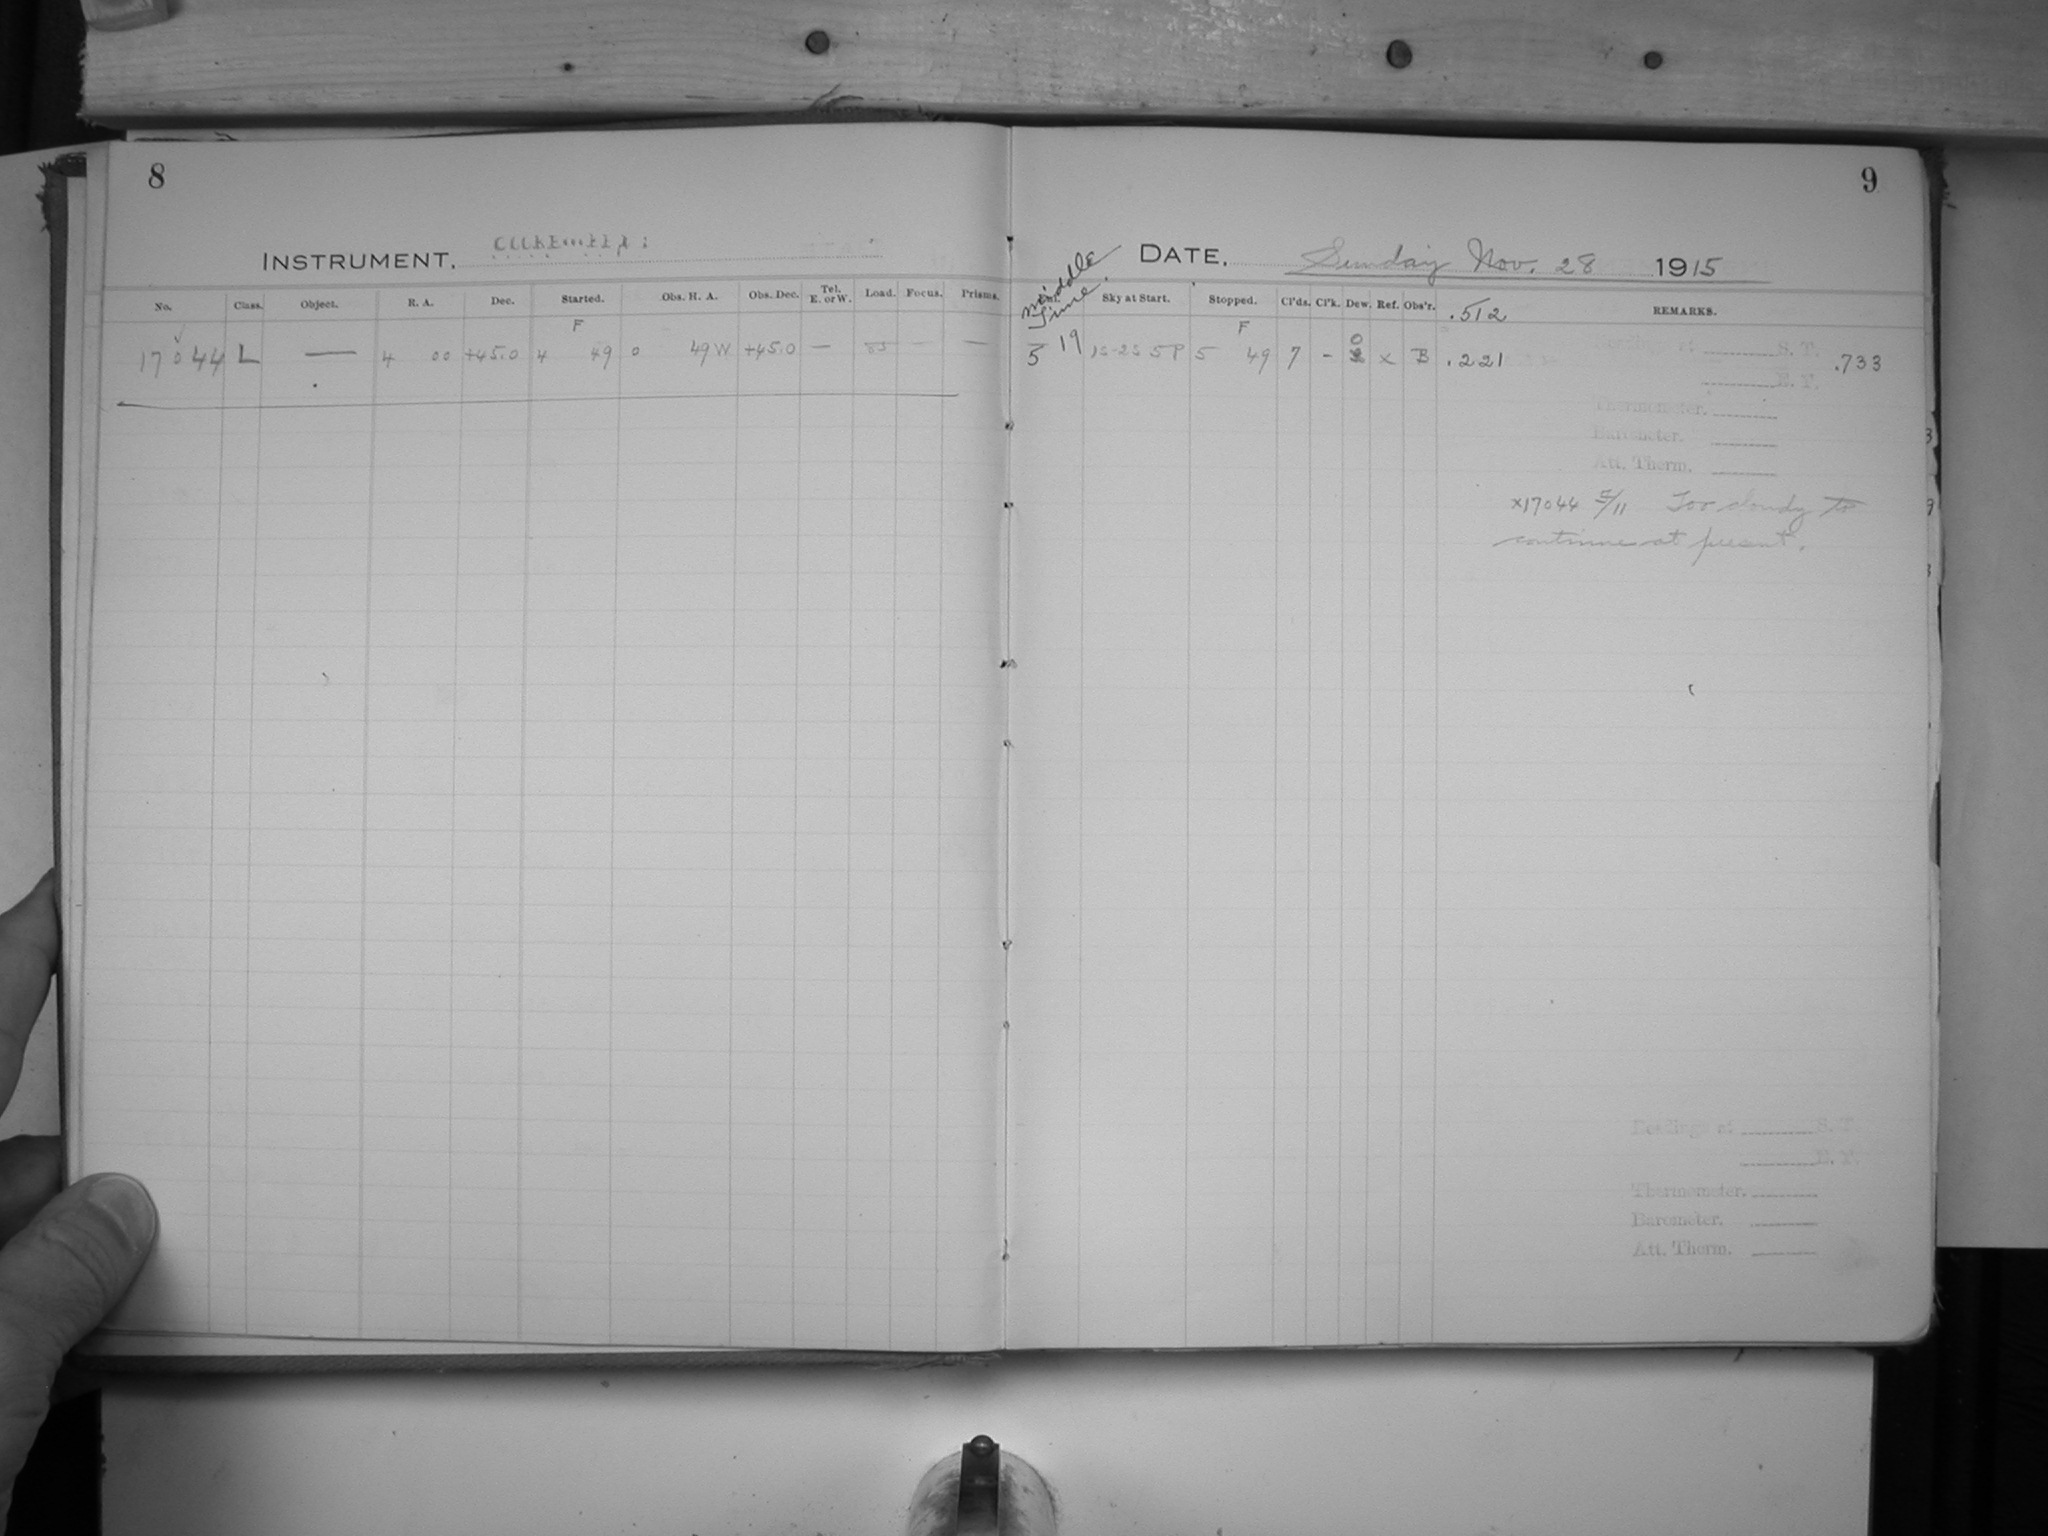 8
INSTRUMENT.
No. Class. Object. R. A. Dec. Started. Obs. R. A. Obs. Dec. Tel. E. or W. Load. Focus. Prisms.
F
17044 L — 4 00 +45.0 4 49 0 49 W +45.0 — — —
9
DATE. Sunday Nov. 28 1915
Middle Time.
Sky at Start. Stopped. Cl'ds. Cl'k. Dew. Ref. Obs'r. .512 REMARKS.
F
5 19 5P 5 49 7 - 0 x B .221 .733
Readings at S. T.
E. T.
Thermometer.
Barometer.
Att. Therm.
x17044 5/11 Too cloudy to
continue at present.
Readings at S. T.
E. T.
Thermometer.
Barometer.
Att. Therm.